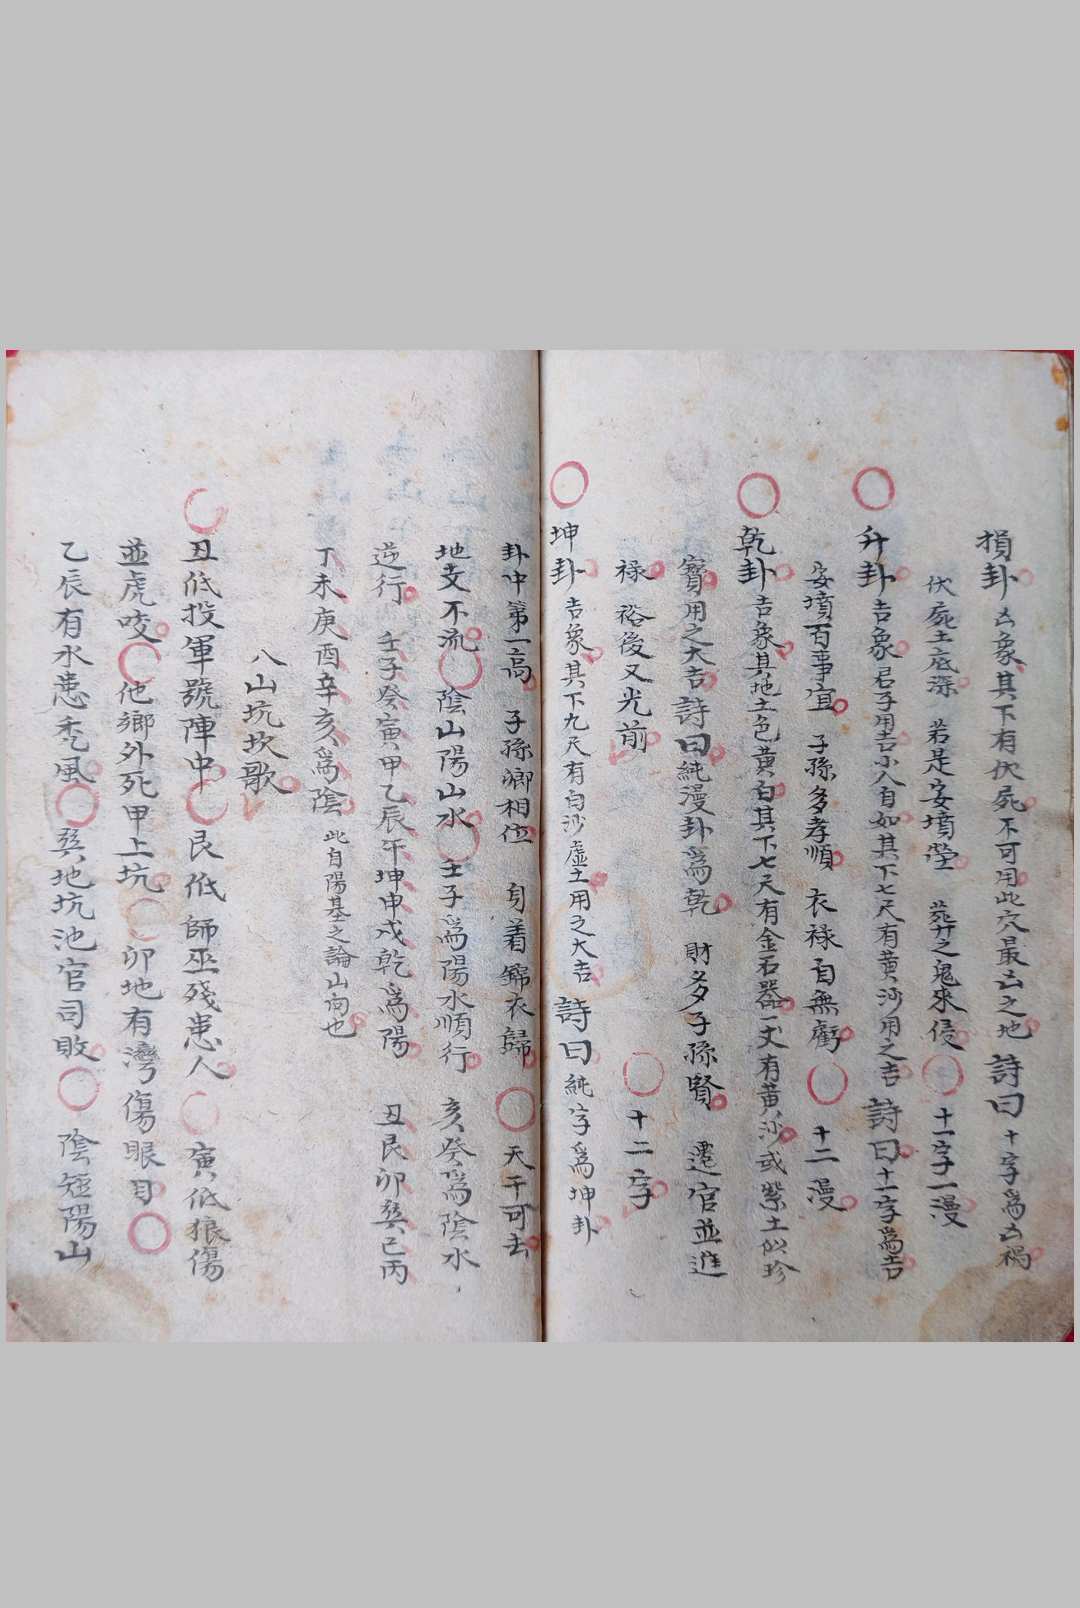 損卦 凶象其下有伏屍不可用此穴最凶之地 詩曰 十字爲凶禍
伏屍土底深 若是安墳塋 葬之鬼來侵 十一字一漫
升卦 吉象君子用吉小人自如其下七尺有黄沙用之吉 詩曰 十一字爲吉
安墳百事宜 子孫多孝順 衣禄自無虧 十二漫
乾卦 吉象其地土色黄白其下七尺有金石器一丈有黄沙或紫土似珍
寳用之大吉 詩曰 純漫卦爲乾 財多子孫賢 遷官並進
禄 裕後又光前 十二字
坤卦 吉象其下九尺有白沙虚土用之大吉 詩曰 純字爲坤卦
卦中第一高 子孫卿相位 身着錦衣歸 天干可去
地支不流 陰山陽山水 壬子爲陽水順行 亥癸爲陰水
逆行 壬子癸寅甲乙辰午坤申戌乾爲陽 丑艮卯巽己丙
丁未庚酉辛亥爲陰 此自陽基之論山向也
八山坑坎歌
丑低投軍號陣中 艮低師巫殘患人 寅低狼傷
並虎咬 他鄉外死甲上坑 卯地有灣傷眼目
乙辰有水患秃風 巽地坑池官司敗 陰短陽山